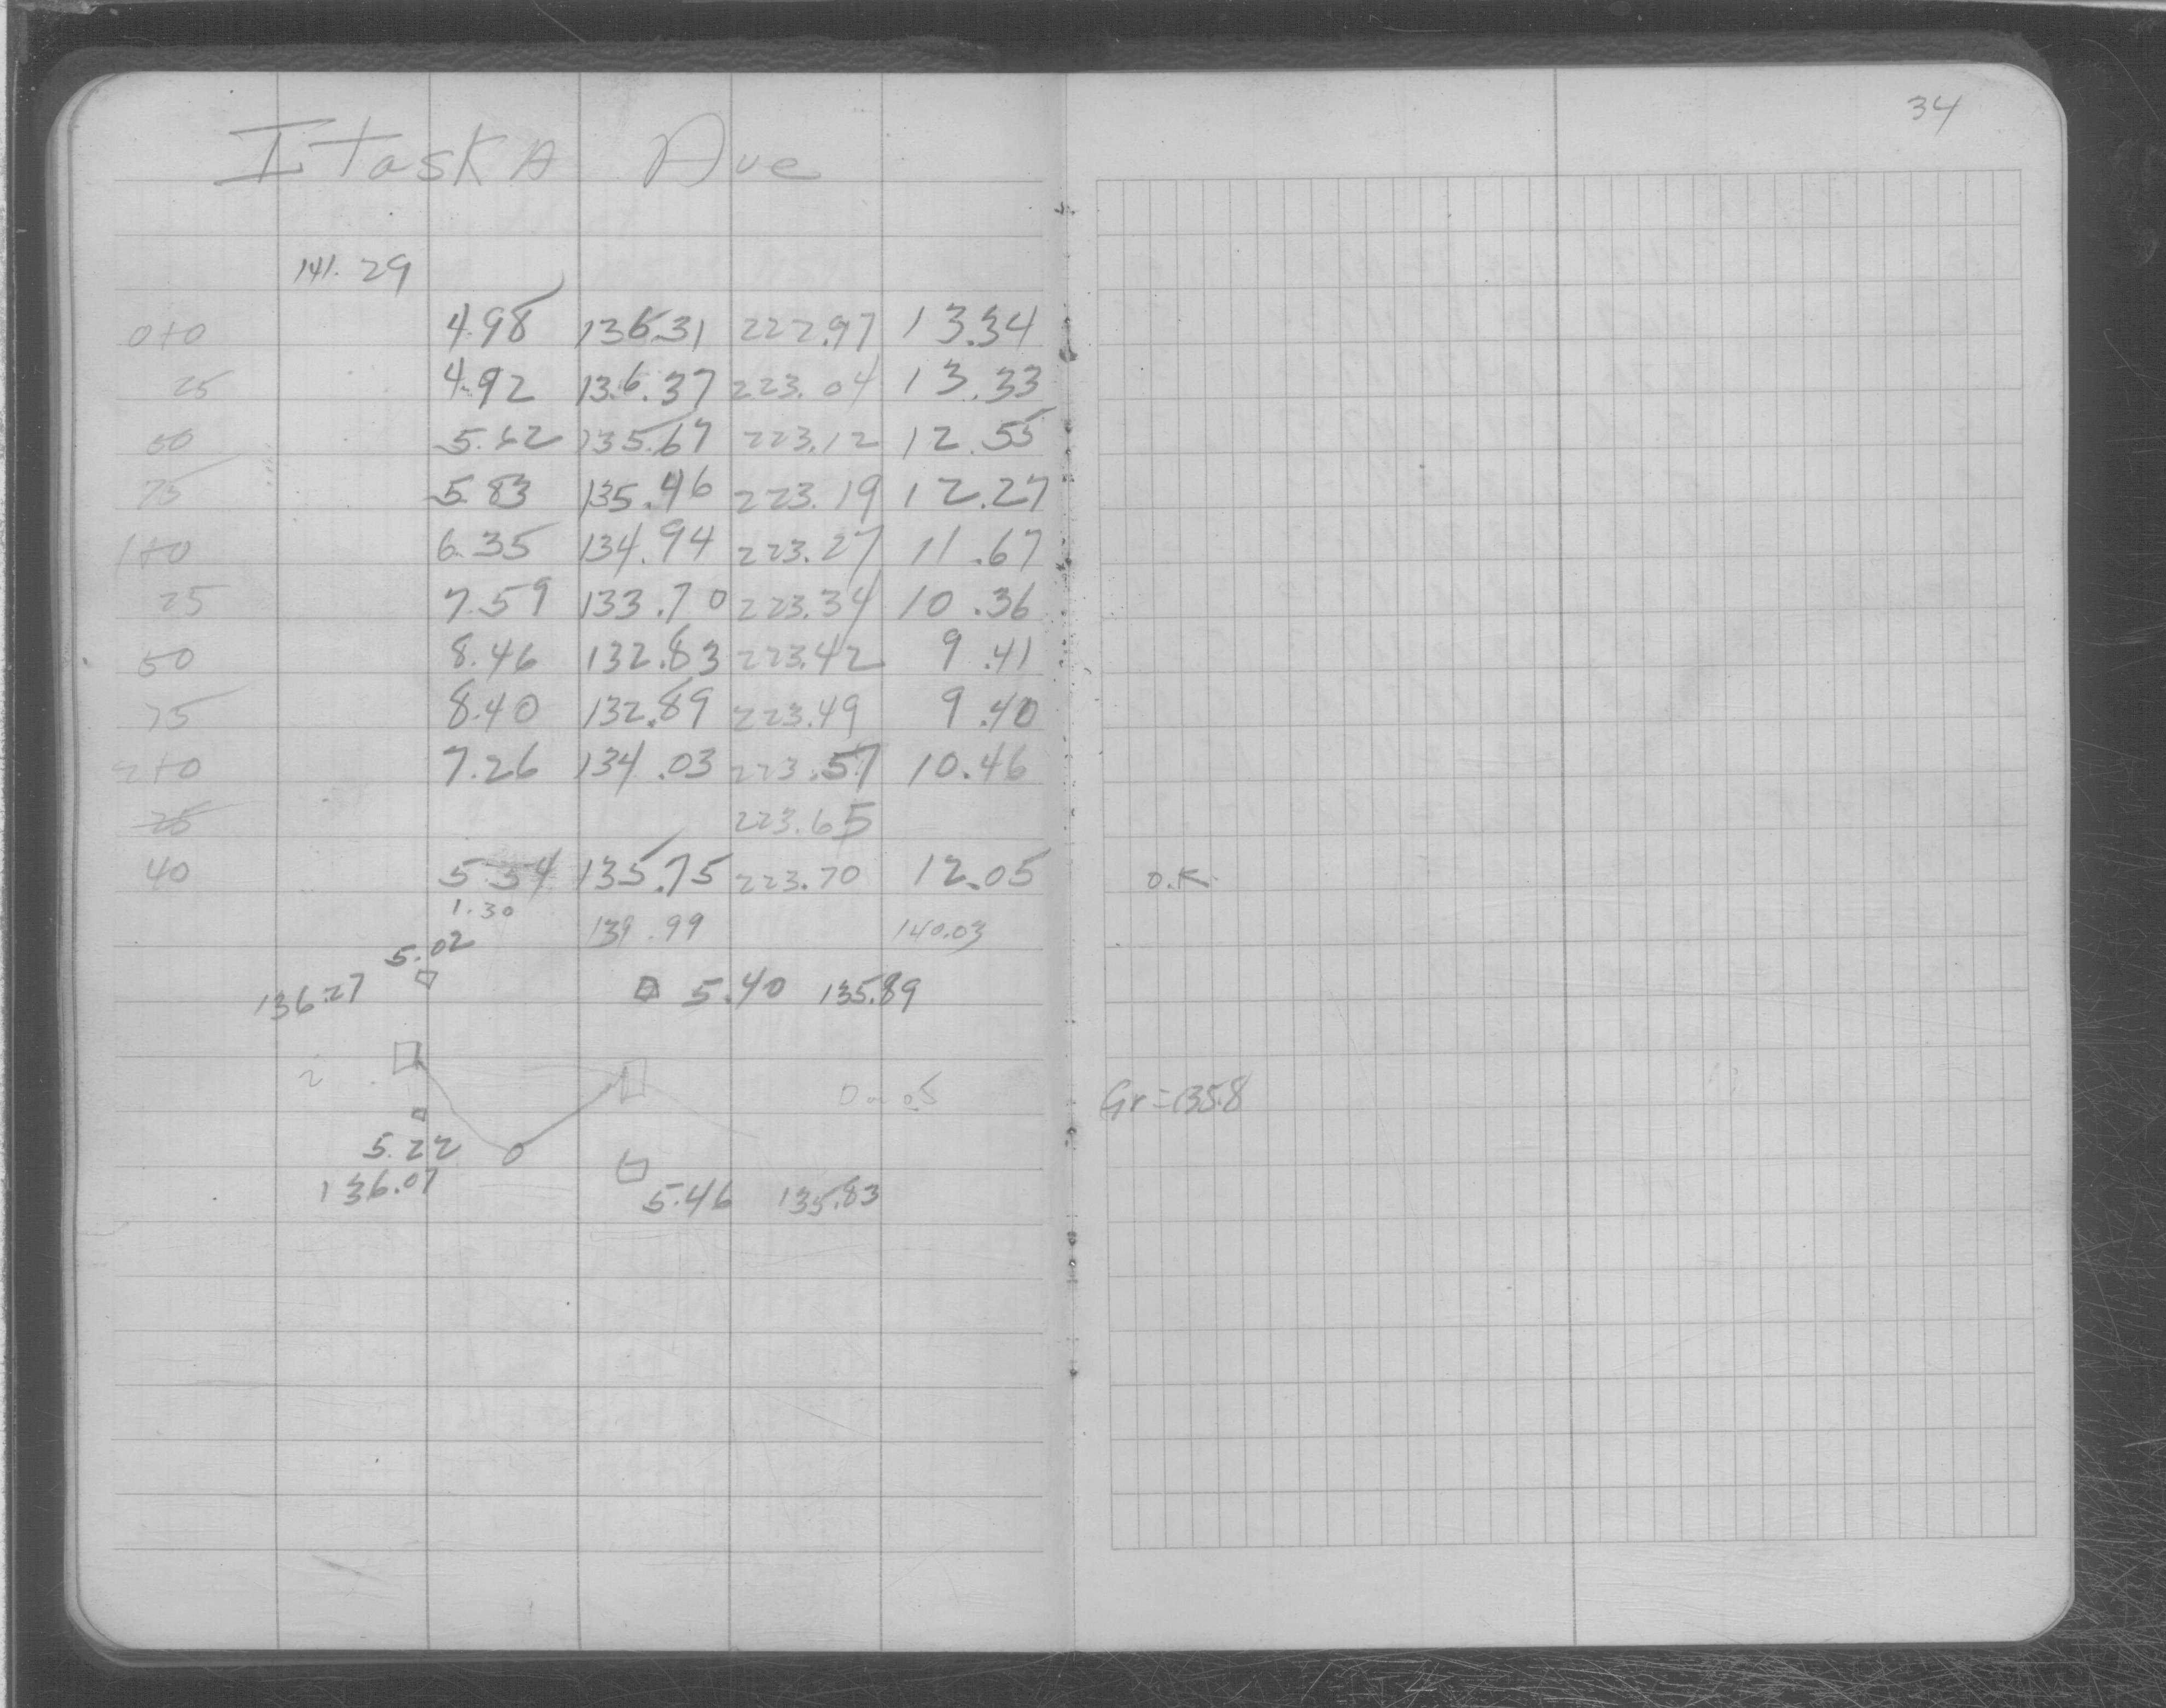 34
Itaska Ave
141.29
0+0 4.98 136.31 222.97 13.34
25 4.92 136.37 223.04 13.33
50 5.62 135.67 223.12 12.55
75 5.83 135.46 223.19 12.27
1+0 6.35 134.94 223.27 11.67
25 7.59 133.70 223.34 10.36
50 8.46 132.83 223.42 9.41
75 8.40 132.89 223.49 9.40
2+0 7.26 134.03 223.57 10.46
25 223.65
40 5.54 135.75 223.70 12.05 O.K.
1.30 139.99 140.03
5.02
136.27 5.40 135.89
Gr = 135.8
5.22
136.07
5.46 135.83